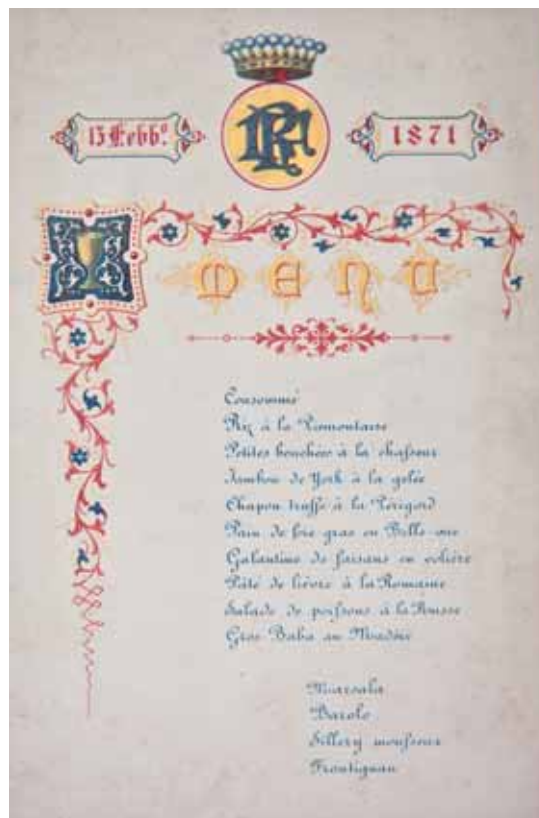 15 Febb.º
PR
1871
MENU
Consommé
Riz à la Piemontaise
Petites bouchées à la chasseur
Jambon de York à la gelée
Chapon truffé à la Périgord
Pain de foie gras en Belle-vue
Galantine de faisans en volière
Pâté de lièvre à la Romaine
Salade de poissons à la Russe
Gros Baba au Madère
Marsala
Barolo
Sillery mousseux
Frontignan